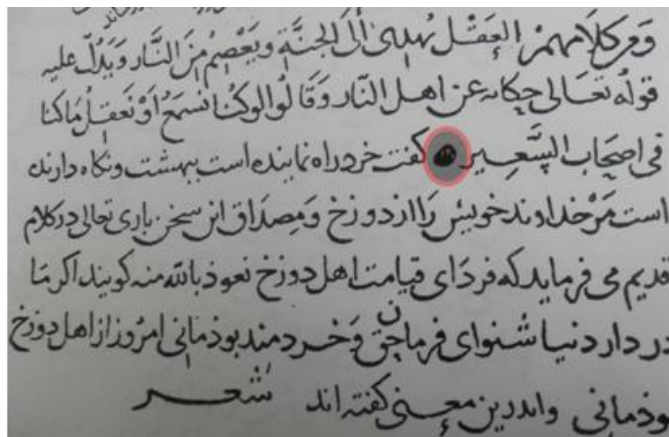 ومن كلامهم العقل یهدی الی الجنة ویعصم من النار ویدل علیه
قوله تعالی حكایه عن اهل النار وقالوا لو كنا نسمع او نعقل ما كنا
فی اصحاب السعیر كفت خرد راه نماینده است ببهشت ونكاه دارنده
است مر خداوند خویش را از دوزخ ومصداق این سخن باری تعالی در كلام
قدیم می فرماید كه فردای قیامت اهل دوزخ نعوذ بالله منه كویند اكر ما
در دار دنیا شنوای فرمان حق وخردمند بوذمانی امروز از اهل دوزخ
بوذمانی واندرین معنی كفته اند شعر